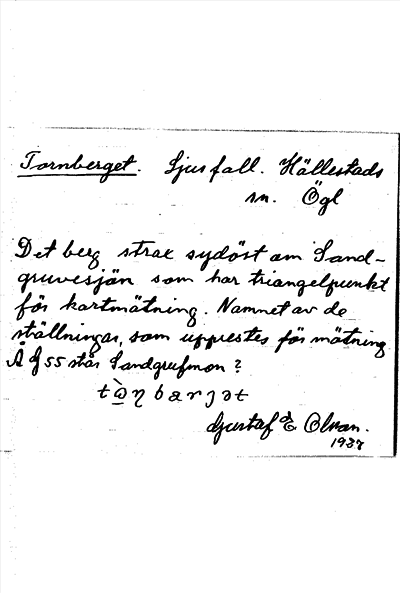 Tornberget. Ljusfall. Hällestads
sn. Ögl
Det berg strax sydöst om Sand-
gruvesjön som har triangelpunkt
för kartmätning. Namnet av de
ställningar, som uppsestes för mätning
Å G 55 står Sandgrufmon?
tɷ̀ɳbarjət
Gustaf E Olsson.
1937